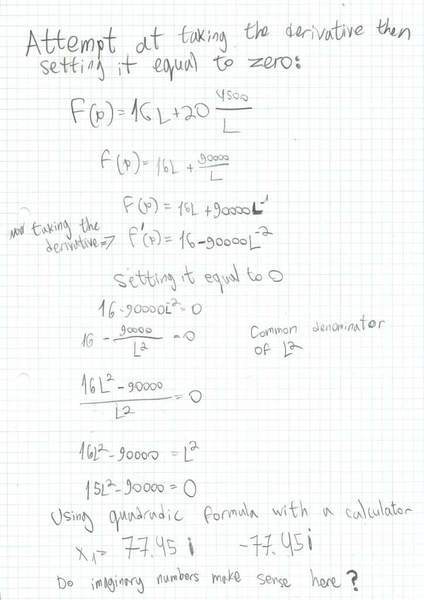 Attempt at taking the derivative then
setting it equal to zero:
F(p) = 16L + 20 4500/L
F(p) = 16L + 90000/L
F(p) = 16L + 90000L⁻¹
now taking the
derivative => F'(p) = 16 - 90000L⁻²
setting it equal to 0
16 - 90000L⁻² = 0
16 - 90000/L² = 0
Common denominator
of L²
16L² - 90000/L² = 0
16L² - 90000 = L²
15L² - 90000 = 0
Using quadradic formula with a calculator
x₁ = 77.45 i -77.45i
Do imaginary numbers make sense here?